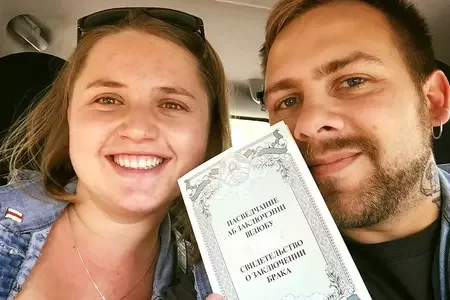 ПАСВЕДЧАННЕ
АБ ЗАКЛЮЧЭННІ
ШЛЮБУ
СВИДЕТЕЛЬСТВО
О ЗАКЛЮЧЕНИИ
БРАКА